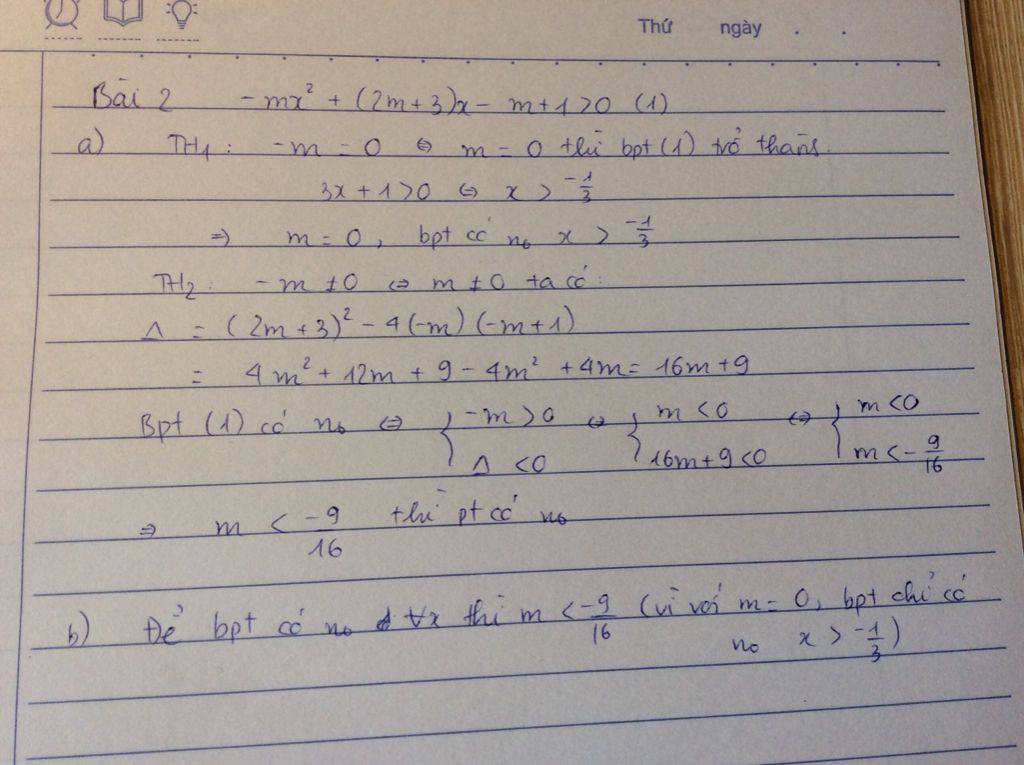 Thứ ngày . .
Bài 2 -mx² + (2m+3)x - m+1>0 (1)
a) TH₁: -m = 0 ⇔ m = 0 thì bpt (1) trở thành.
3x + 1>0 ⇔ x > -1/3
⇒ m = 0, bpt có no x > -1/3
TH₂: -m ≠ 0 ⇔ m ≠ 0 ta có:
Δ = (2m+3)² - 4(-m)(-m+1)
= 4m² + 12m + 9 - 4m² + 4m = 16m+9
Bpt (1) có no ⇔ { -m>0 ⇔ { m<0 ⇔ { m<0
Δ <0 16m+9<0 m< -9/16
⇒ m < -9/16 thì pt có no
b) Để bpt có no ∀x thì m < -9/16 (vì với m = 0, bpt chỉ có
no x > -1/3)